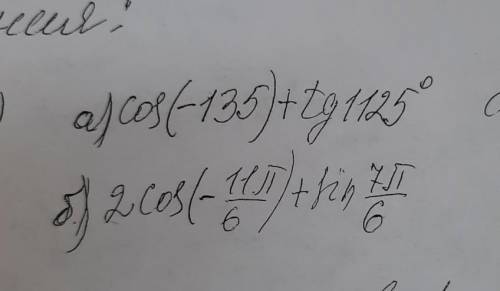 а) cos(-135)+tg1125°
б) 2cos(-11π/6)+sin 7π/6